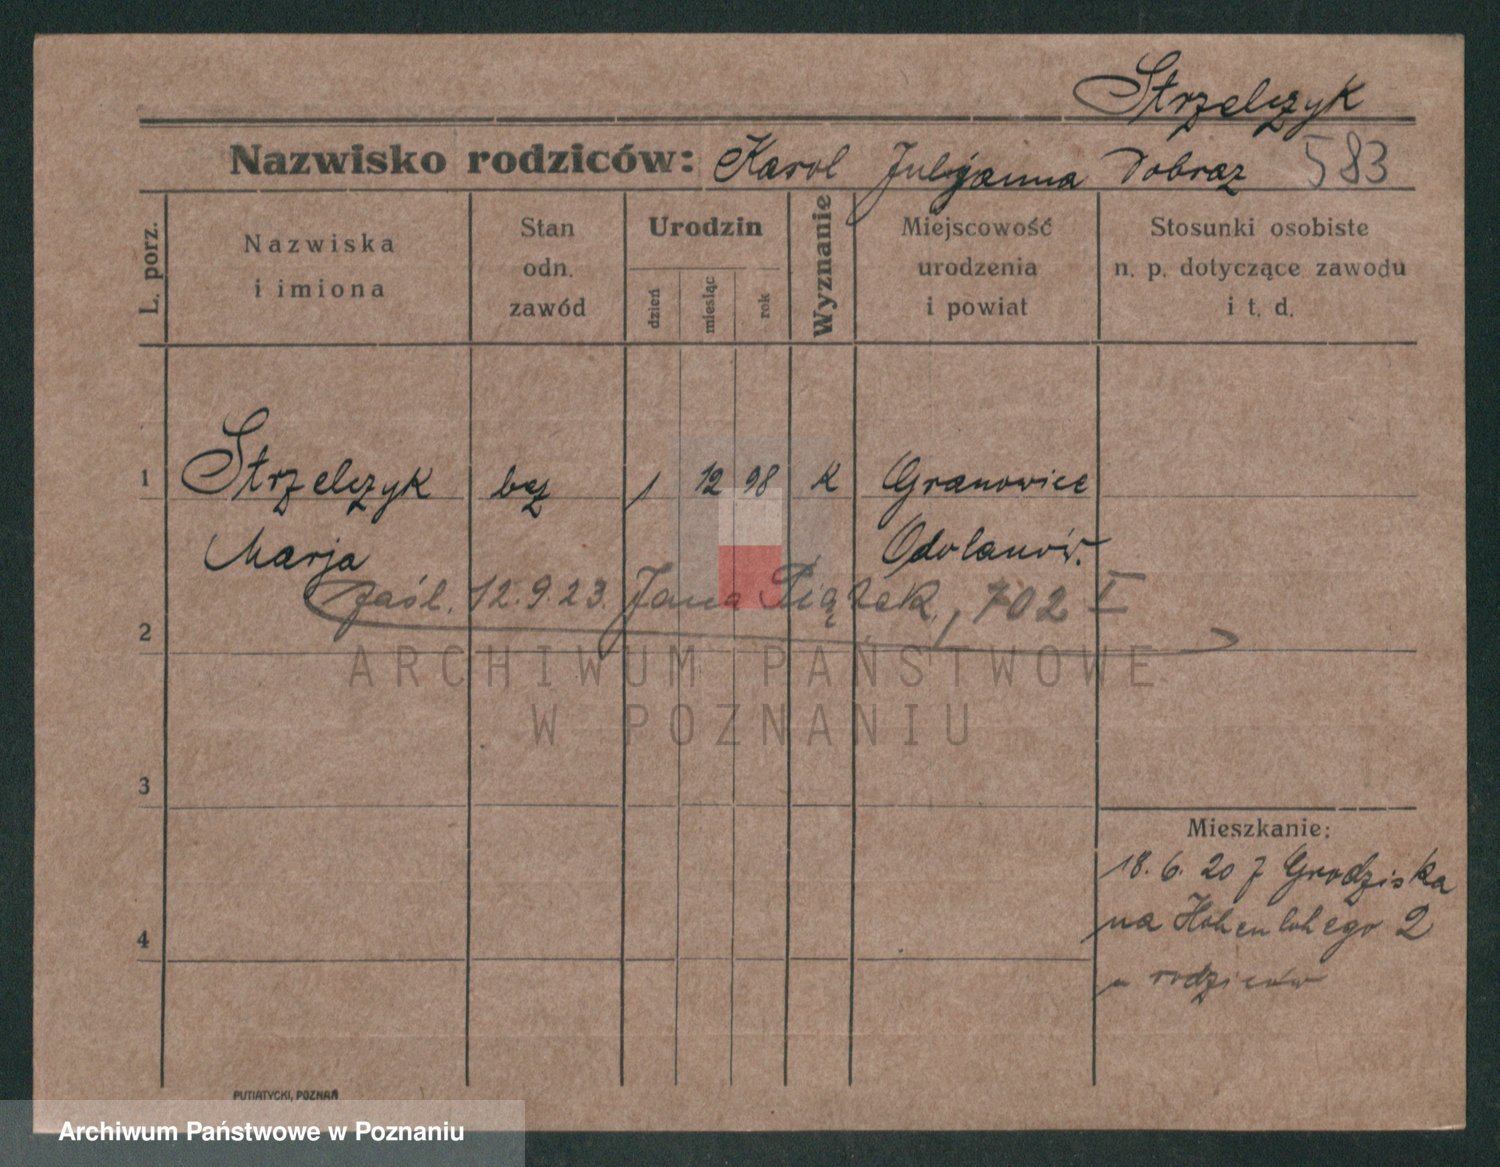 Strzelczyk
Nazwisko rodziców: Karol Julijanna Dobraz 583
L. porz.
Nazwiska
i imiona
Stan
odn.
zawód
Urodzin
dzień
miesiąc
rok
Wyznanie
Miejscowość
urodzenia
i powiat
Stosunki osobiste
n. p. dotyczące zawodu
i t. d.
1 Strzelczyk bez 1 12 98 k Granowice
Marja Odolanów.
zaśl. 12.9.23. Jana Piątek, 702 I
2
ARCHIWUM PAŃSTWOWE
W POZNANIU
3
Mieszkanie:
18. 6. 20 z Grodziska
na Hohenlohego 2
u rodziców
4
PUTIATYCKI, POZNAŃ
Archiwum Państwowe w Poznaniu